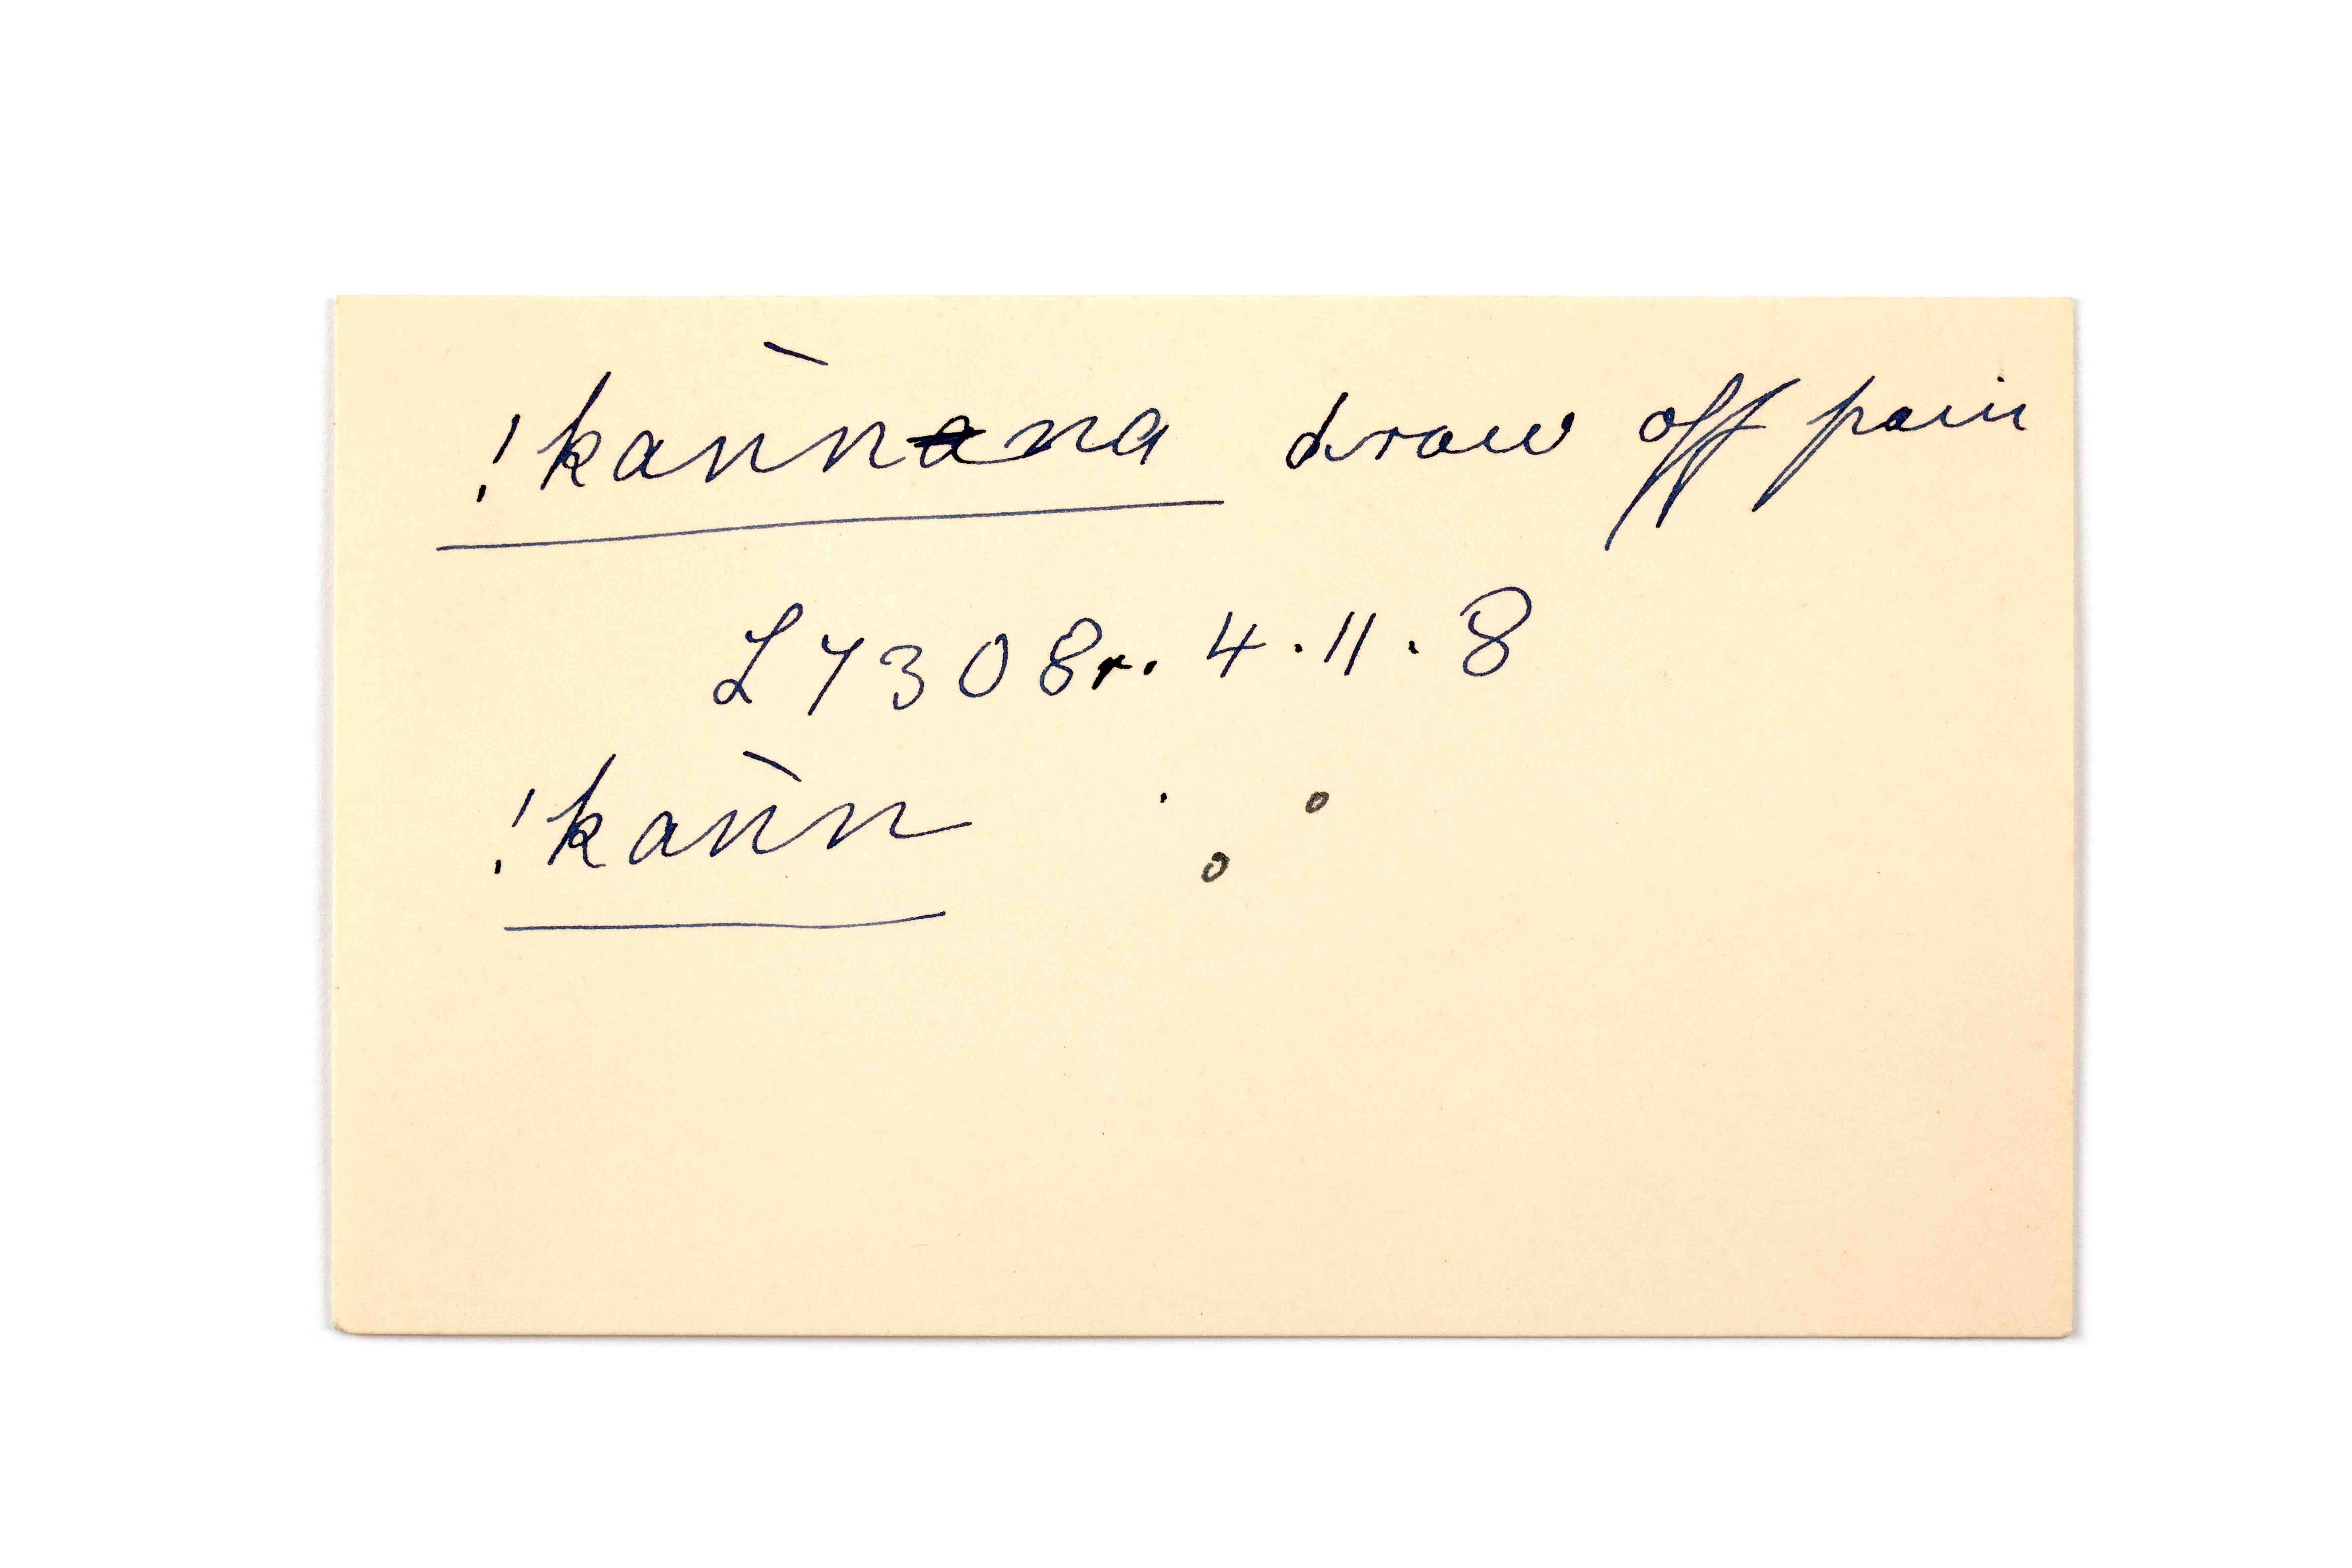 !kaǹnna draw off pain
L7308r. 4.11.8
!kaǹn